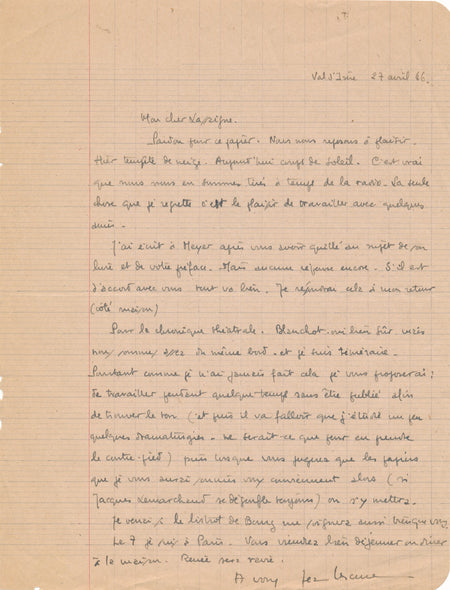 Val d'Isère 27 avril 66.
Mon cher Lassaigne.
Pardon pour ce papier. Nous nous reposons à plaisir.
Hier tempête de neige. Aujourd'hui coups de soleil. C'est vrai
que nous nous en sommes tirés à temps de la radio. La seule
chose que je regrette c'est le plaisir de travailler avec quelques
J'ai écrit à Meyer après vous avoir quitté au sujet de son
livre et de votre préface. Mais aucune réponse encore. S'il est
d'accord avec vous tout va bien. Je à mon retour
(côté maison)
Pour la chronique théâtrale. Blanchot oui bien sûr.
nous sommes assez du même bord. et je suis téméraire.
Pourtant comme je n'ai jamais fait cela je vous proposerai :
de travailler pendant quelque temps sans être publié afin
de trouver le ton (et puis il va falloir que j'étudie un peu
quelques dramaturgies. ne serait-ce que pour en prendre
le contre-pied) puis lorsque vous jugerez que les papiers
que je vous aurai vous conviennent alors (si
Jacques Lemarchand se dégonfle toujours) on s'y mettra.
Je si le bistrot de
Le 7 je suis à Paris. Vous viendrez bien déjeuner ou dîner
à la maison. Renée sera ravie.
A vous